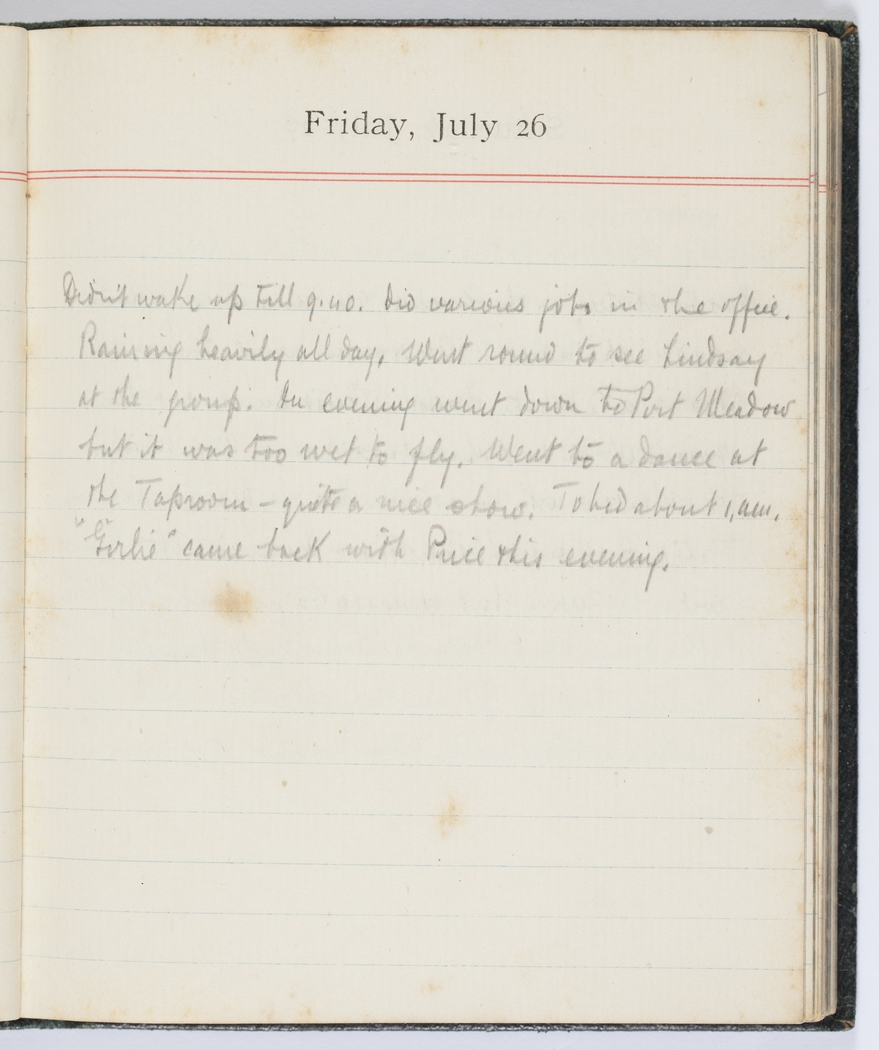 Friday, July 26
Didn't wake up till 9.40. Did various jobs in the office.
Raining heavily all day. Went round to see Lindsay
at the group. In evening went down to Port Meadow
but it was too wet to fly. Went to a dance at
the Taproom – quite a nice show. To bed about 1, am.
"Girlie" came back with Price this evening.